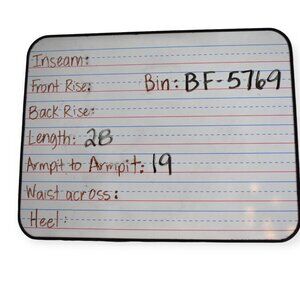 Inseam:
Front Rise: Bin: BF-5769
Back Rise:
Length: 28
Armpit to Armpit: 19
Waist across:
Heel: